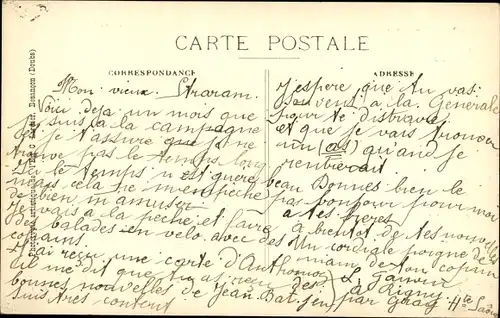 CARTE POSTALE
CORRESPONDANCE
Mon vieux
Voici deja un mois que
je suis a la campagne
je t'assure que je ne
trouve pas le temps long
Ici le temps n'est guere beau
mais cela ne m'empeche pas
de bien m'amuser
Je vais a la peche et faire
des balades en velo avec des
copains
J'ai reçu une carte d'Anthonor
il me dit que tu as reçu des
bonnes nouvelles de Jean Bat. j'en
suis tres content
ADRESSE
J'espere que tu vas
souvent a la Generale
pour te distraire
et que je vais trouver
un (as) quand je
rentrerait
Donnes bien le
bonjour pour moi
a tes freres
a bientot de tes nouvelles
Un cordiale poigne de
main de ton copain
a Rigny
par Gray Hte Saône